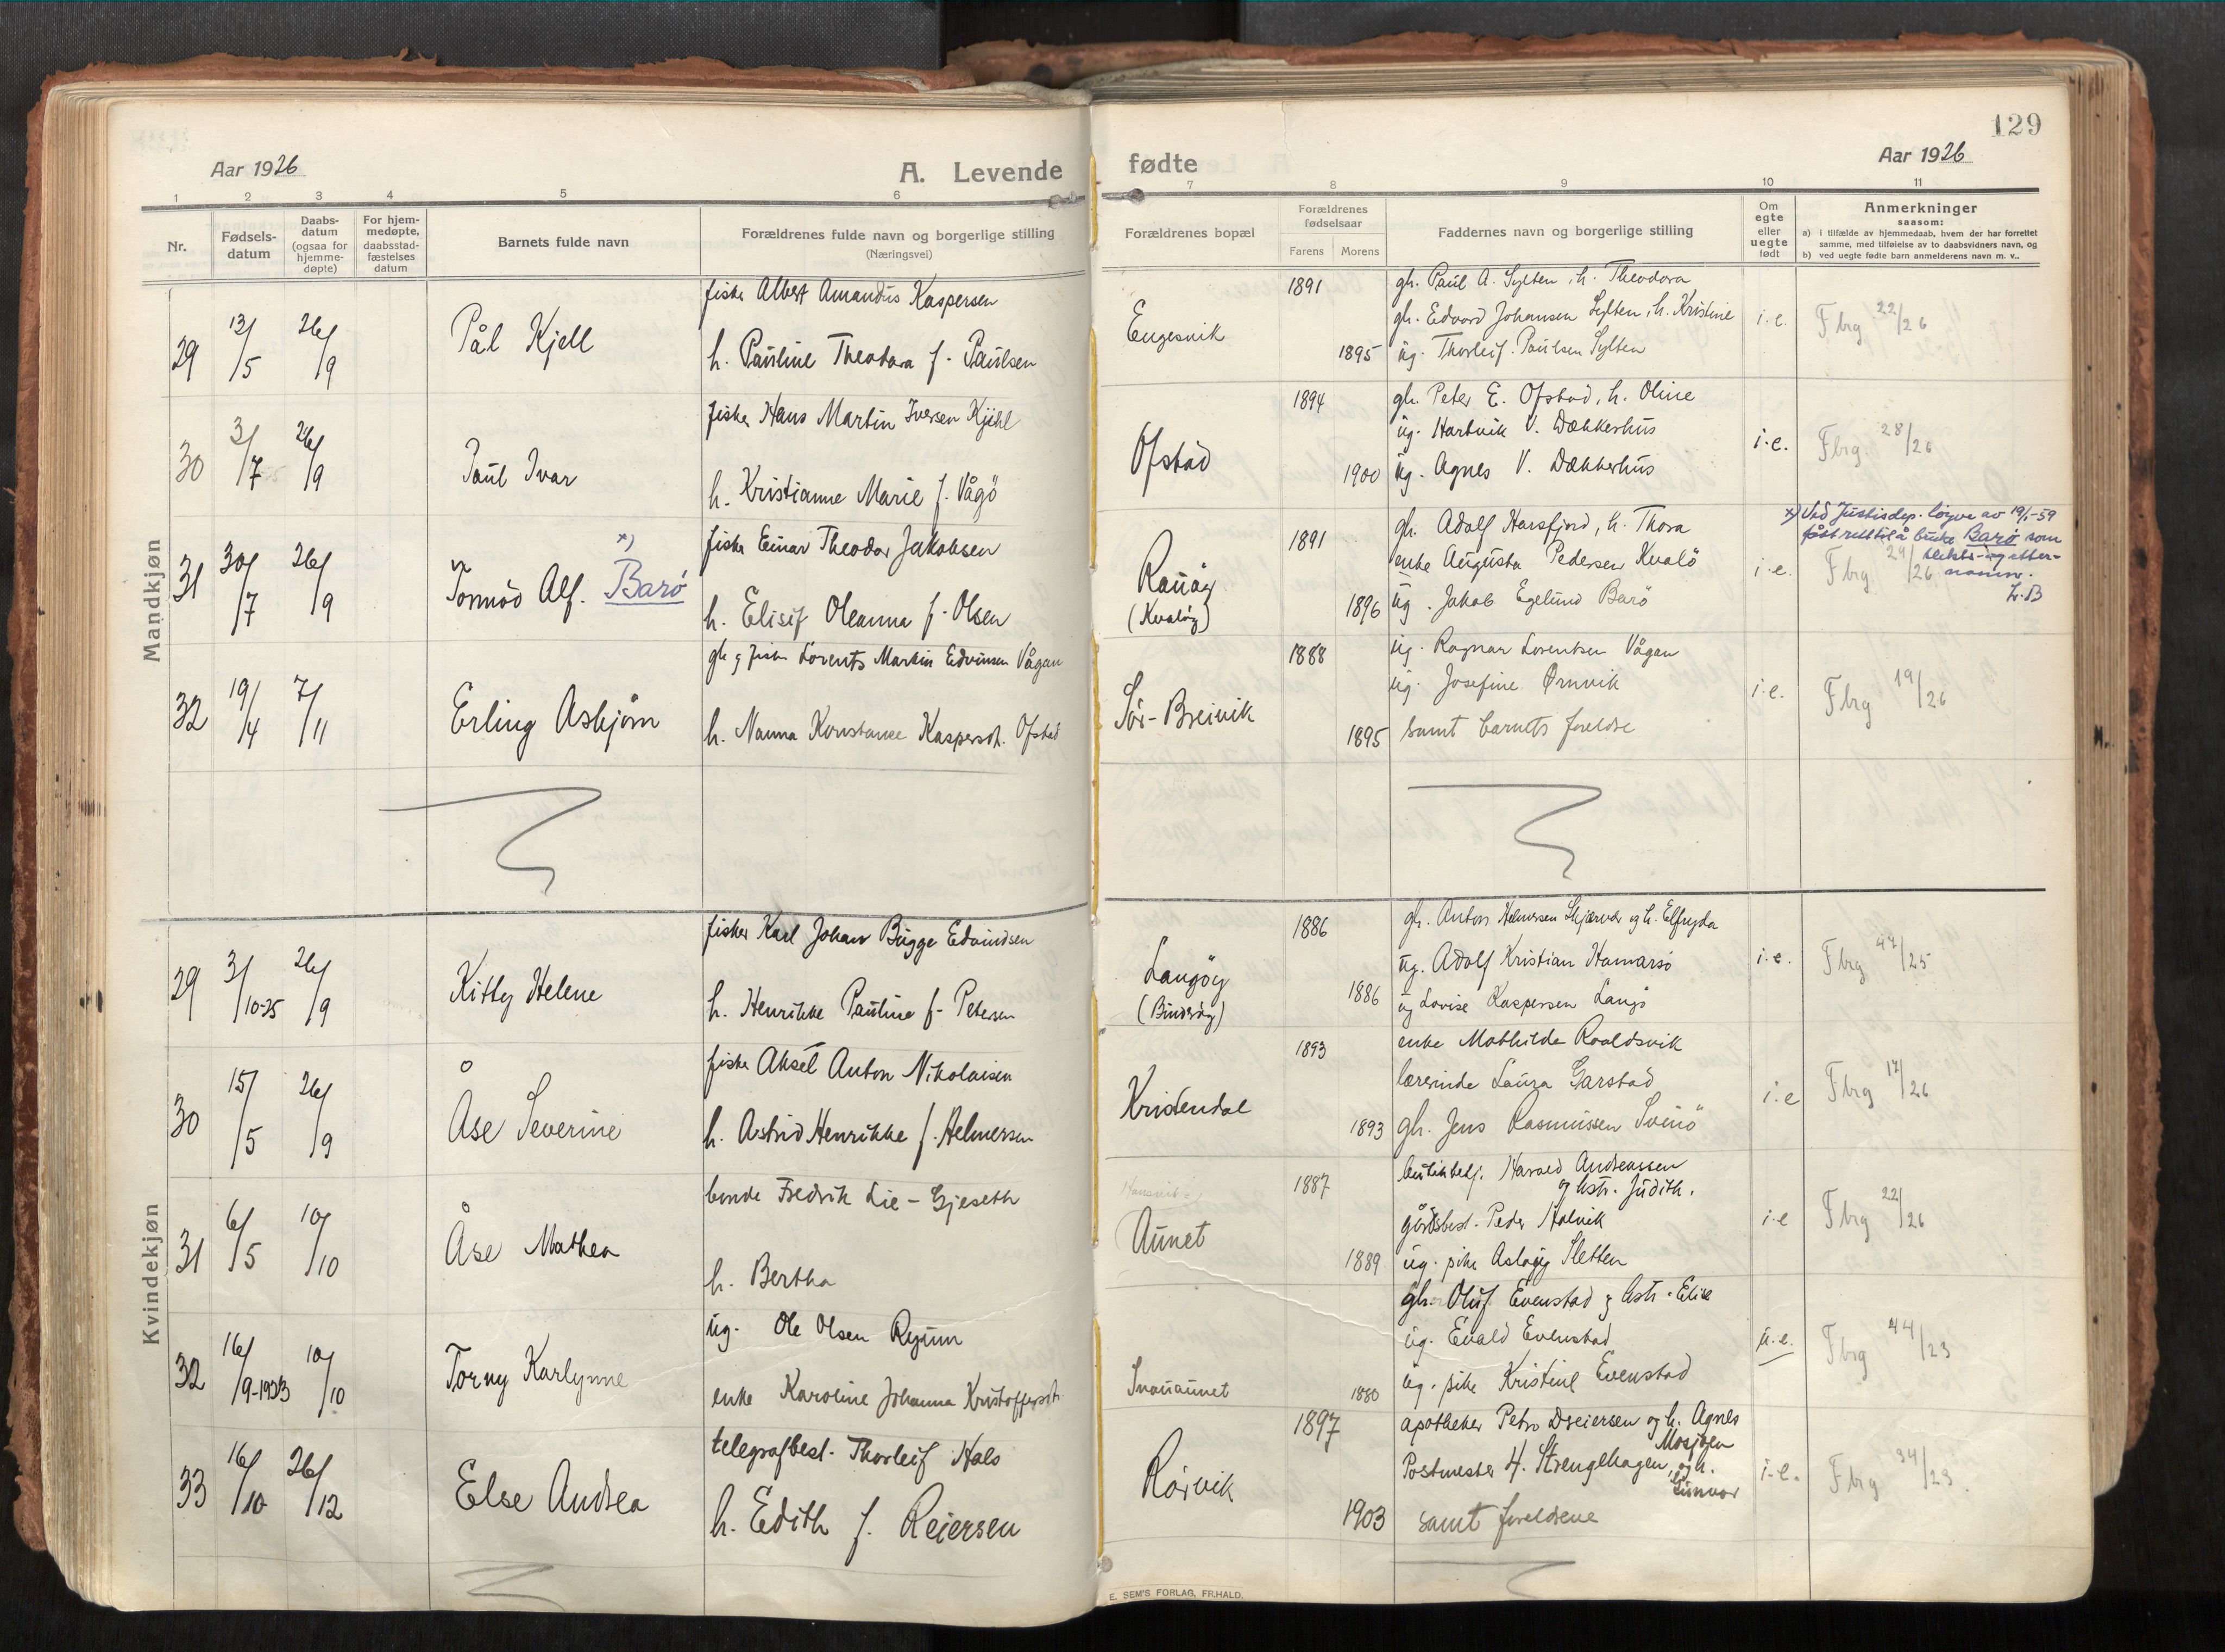 129
Aar 1926
A. Levende fødte
Aar 1926
1 2 3 4 5 6 7 8 9 10 11
Nr.
Fødsels-
datum
Daabs-
datum
(ogsaa for
hjemme-
døpte)
For hjem-
medøpte,
daabsstad-
fæstelses
datum
Barnets fulde navn
Forældrenes fulde navn og borgerlige stilling
(Næringsvei)
Forældrenes bopæl
Forældrenes
fødselsaar
Farens Morens
Faddernes navn og borgerlige stilling
Om
egte
eller
uegte
født
Anmerkninger
saasom:
a) i tilfælde av hjemmedaab, hvem der har forrettet
samme, med tilføielse av to daabsvidners navn, og
b) ved uegte fødte barn anmelderens navn m. v..
Mandkjøn
29 13/5 26/9 Pål Kjell
fisker Albert Amandus Kaspersen
h. Pauline Theodora f. Paulsen
Engesvik
1891
1895
gh. Paul A. Sylten, h. Theodora
gh. Edvard Johansen Sylten, h. Kristine
ug. Thorleif Paulsen Sylten
i.e.
Fbrg 22/26
30 3/7 26/9 Paul Ivar
fisker Hans Martin Iversen Kjihl
h. Kristianne Marie f. Vågö
Ofstad
1894
1900
gh. Peter E. Ofstad, h. Oline
ug. Hartvik V. Dækkerhus
ug. Agnes V. Dækkerhus
i.e.
Fbrg 28/26
31 30/7 26/9 Tormod Alf. x) Barö
fisker Einar Theodor Jakobsen
h. Elisif Oleanna f. Olsen
Rauöy
(Kvalöy)
1891
1896
gh. Adolf Horsfjord, h. Thora
enke Augusta Pedersen Kvalö
ug. Jakob Egelund Barö
i.e.
Fbrg 29/26
x) Ved Justisdep. löyve av 19/1-59
fått rett til å bruke Barö som
slekts- og etter-
namn.
L.B
32 19/4 7/11 Erling Asbjörn
gh. og fisker Lorents Martin Edvinsen Vågan
h. Nanna Konstanse Kaspersdt. Ofstad
Sör-Breivik
1888
1895
ug. Ragnar Lorentsen Vågan
ug. Josefine Ørnvik
samt barnets foreldre
i.e.
Fbrg 19/26
Kvindekjøn
29 3/10-25 26/9 Kitty Helene
fisker Karl Johan Bugge Edvindsen
h. Henrikke Pauline f. Petersen
Langöy
(Binderöy)
1886
1886
gh. Anton Helmersen Skjærvær og h. Elfryda
ug. Adolf Kristian Hamarsö
ug Lovise Kaspersen Langö
i.e.
Fbrg 47/25
30 15/5 26/9 Åse Severine
fisker Aksel Anton Nikolaisen
h. Astrid Henrikke f. Helmersen
Kristendal
1893
1893
enke Mathilde Roaldsvik
lærerinde Laura Garstad
gh. Jens Rasmussen Svinö
i.e
Fbrg 17/26
31 6/5 10/10 Åse Mathea
bonde Fredrik Lie-Gjeseth
h. Bertha
Aunet
1887
1889
butikbetj. Harald Andreassen
og hstr. Judith.
gårdsbest. Peder Holvik
ug. pike Aslaug Sletten
i.e
Fbrg 22/26
32 16/9-1923 10/10 Torny Karlynne
ug. Ole Olsen Ryum
enke Karoline Johanna Kristoffersdt.
Snauaunet
1880
gh. Oluf Evenstad og hstr. Elise
ug. Evald Evenstad
ug. pike Kristine Evenstad
u.e.
Fbrg 44/23
33 16/10 26/12 Else Andrea
telegrafbest. Thorleif Hals
h. Edith f. Reiersen
Rörvik
1897
1903
apotheker Petro Dreiersen og h. Agnes
Mosjøen
Postmester H. Strengelhagen, og h.
Gunvor
samt foreldrene
i.e.
Fbrg 34/23.
E. SEM'S FORLAG, FR.HALD.